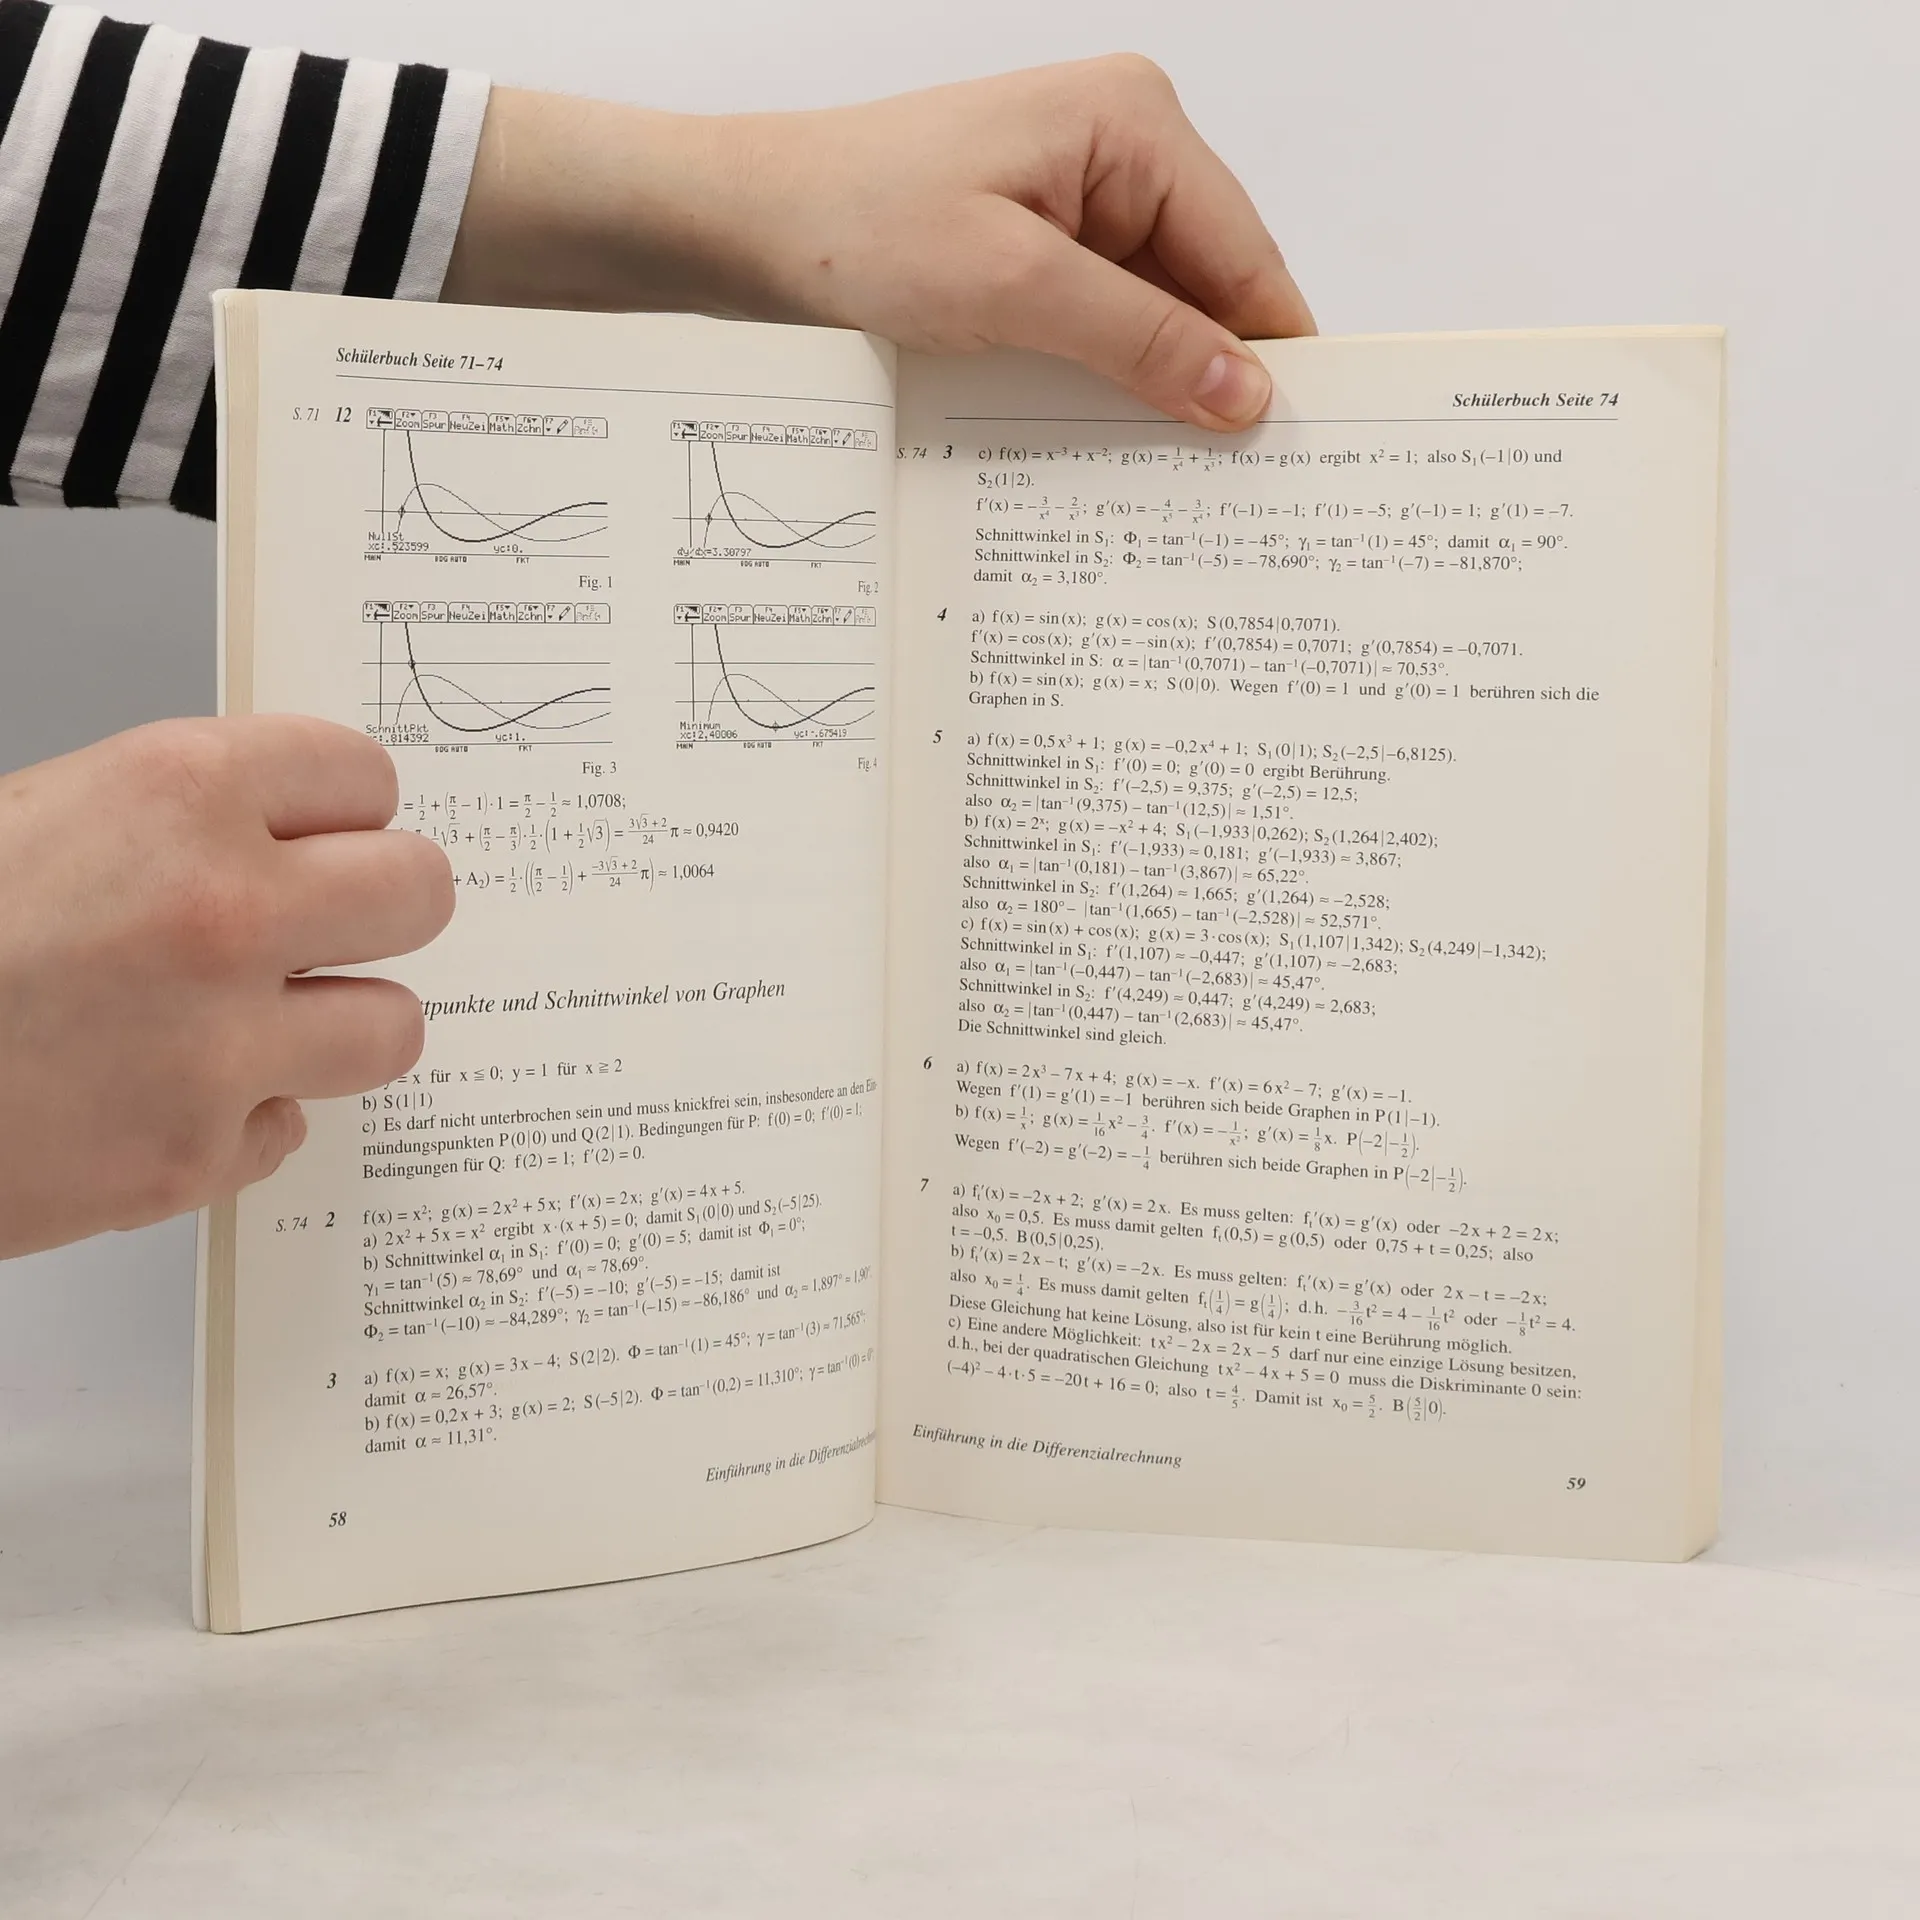 Schülerbuch Seite 71–74
S. 71 12
F1 F2 F3 F4 F5 F6 F7
Zoom Spur NeuZei Math Zchn
NullSt
xc:.523599 yc:0.
MAIN BOG AUTO FKT
Fig. 1
F1 F2 F3 F4 F5 F6 F7
Zoom Spur NeuZei Math Zchn
dy/dx=3.30797
MAIN BOG AUTO FKT
Fig. 2
F1 F2 F3 F4 F5 F6 F7
Zoom Spur NeuZei Math Zchn
SchnittPkt
xc:.814392 yc:1.
BOG AUTO FKT
Fig. 3
F1 F2 F3 F4 F5 F6 F7
Zoom Spur NeuZei Math Zchn
Minimum
xc:2.40086 yc:-.675419
MAIN BOG AUTO FKT
Fig. 4
= 1/2 + (π/2 − 1)·1 = π/2 − 1/2 ≈ 1,0708;
1/2√3 + (π/2 − π/3)·1/2·(1 + 1/2√3) = (3√3 + 2)/24 π ≈ 0,9420
+ A₂) = 1/2·((π/2 − 1/2) + (−3√3 + 2)/24 π) ≈ 1,0064
ttpunkte und Schnittwinkel von Graphen
y = x für x ≦ 0; y = 1 für x ≧ 2
b) S(1|1)
c) Es darf nicht unterbrochen sein und muss knickfrei sein, insbesondere an den Ein-
mündungspunkten P(0|0) und Q(2|1). Bedingungen für P: f(0) = 0; f′(0) = 1;
Bedingungen für Q: f(2) = 1; f′(2) = 0.
S. 74 2 f(x) = x²; g(x) = 2x² + 5x; f′(x) = 2x; g′(x) = 4x + 5.
a) 2x² + 5x = x² ergibt x·(x + 5) = 0; damit S₁(0|0) und S₂(−5|25).
b) Schnittwinkel α₁ in S₁: f′(0) = 0; g′(0) = 5; damit ist Φ₁ = 0°;
γ₁ = tan⁻¹(5) ≈ 78,69° und α₁ ≈ 78,69°.
Schnittwinkel α₂ in S₂: f′(−5) = −10; g′(−5) = −15; damit ist
Φ₂ = tan⁻¹(−10) ≈ −84,289°; γ₂ = tan⁻¹(−15) ≈ −86,186° und α₂ ≈ 1,897° ≈ 1,90°.
3 a) f(x) = x; g(x) = 3x − 4; S(2|2). Φ = tan⁻¹(1) = 45°; γ = tan⁻¹(3) ≈ 71,565°;
damit α ≈ 26,57°.
b) f(x) = 0,2x + 3; g(x) = 2; S(−5|2). Φ = tan⁻¹(0,2) = 11,310°; γ = tan⁻¹(0) = 0°;
damit α ≈ 11,31°.
Einführung in die Differenzialrechnung
58
Schülerbuch Seite 74
S. 74 3 c) f(x) = x⁻³ + x⁻²; g(x) = 1/x⁴ + 1/x³; f(x) = g(x) ergibt x² = 1; also S₁(−1|0) und
S₂(1|2).
f′(x) = −3/x⁴ − 2/x³; g′(x) = −4/x⁵ − 3/x⁴; f′(−1) = −1; f′(1) = −5; g′(−1) = 1; g′(1) = −7.
Schnittwinkel in S₁: Φ₁ = tan⁻¹(−1) = −45°; γ₁ = tan⁻¹(1) = 45°; damit α₁ = 90°.
Schnittwinkel in S₂: Φ₂ = tan⁻¹(−5) = −78,690°; γ₂ = tan⁻¹(−7) = −81,870°;
damit α₂ = 3,180°.
4 a) f(x) = sin(x); g(x) = cos(x); S(0,7854|0,7071).
f′(x) = cos(x); g′(x) = −sin(x); f′(0,7854) = 0,7071; g′(0,7854) = −0,7071.
Schnittwinkel in S: α = |tan⁻¹(0,7071) − tan⁻¹(−0,7071)| ≈ 70,53°.
b) f(x) = sin(x); g(x) = x; S(0|0). Wegen f′(0) = 1 und g′(0) = 1 berühren sich die
Graphen in S.
5 a) f(x) = 0,5x³ + 1; g(x) = −0,2x⁴ + 1; S₁(0|1); S₂(−2,5|−6,8125).
Schnittwinkel in S₁: f′(0) = 0; g′(0) = 0 ergibt Berührung.
Schnittwinkel in S₂: f′(−2,5) = 9,375; g′(−2,5) = 12,5;
also α₂ = |tan⁻¹(9,375) − tan⁻¹(12,5)| ≈ 1,51°.
b) f(x) = 2ˣ; g(x) = −x² + 4; S₁(−1,933|0,262); S₂(1,264|2,402);
Schnittwinkel in S₁: f′(−1,933) ≈ 0,181; g′(−1,933) ≈ 3,867;
also α₁ = |tan⁻¹(0,181) − tan⁻¹(3,867)| ≈ 65,22°.
Schnittwinkel in S₂: f′(1,264) ≈ 1,665; g′(1,264) ≈ −2,528;
also α₂ = 180° − |tan⁻¹(1,665) − tan⁻¹(−2,528)| ≈ 52,571°.
c) f(x) = sin(x) + cos(x); g(x) = 3·cos(x); S₁(1,107|1,342); S₂(4,249|−1,342);
Schnittwinkel in S₁: f′(1,107) ≈ −0,447; g′(1,107) ≈ −2,683;
also α₁ = |tan⁻¹(−0,447) − tan⁻¹(−2,683)| ≈ 45,47°.
Schnittwinkel in S₂: f′(4,249) ≈ 0,447; g′(4,249) ≈ 2,683;
also α₂ = |tan⁻¹(0,447) − tan⁻¹(2,683)| ≈ 45,47°.
Die Schnittwinkel sind gleich.
6 a) f(x) = 2x³ − 7x + 4; g(x) = −x. f′(x) = 6x² − 7; g′(x) = −1.
Wegen f′(1) = g′(1) = −1 berühren sich beide Graphen in P(1|−1).
b) f(x) = 1/x; g(x) = 1/16 x² − 3/4. f′(x) = −1/x²; g′(x) = 1/8 x. P(−2|−1/2).
Wegen f′(−2) = g′(−2) = −1/4 berühren sich beide Graphen in P(−2|−1/2).
7 a) fₜ′(x) = −2x + 2; g′(x) = 2x. Es muss gelten: fₜ′(x) = g′(x) oder −2x + 2 = 2x;
also x₀ = 0,5. Es muss damit gelten fₜ(0,5) = g(0,5) oder 0,75 + t = 0,25; also
t = −0,5. B(0,5|0,25).
b) fₜ′(x) = 2x − t; g′(x) = −2x. Es muss gelten: fₜ′(x) = g′(x) oder 2x − t = −2x;
also x₀ = t/4. Es muss damit gelten fₜ(t/4) = g(t/4); d.h. −3/16 t² = 4 − 1/16 t² oder −1/8 t² = 4.
Diese Gleichung hat keine Lösung, also ist für kein t eine Berührung möglich.
c) Eine andere Möglichkeit: tx² − 2x = 2x − 5 darf nur eine einzige Lösung besitzen,
d.h., bei der quadratischen Gleichung tx² − 4x + 5 = 0 muss die Diskriminante 0 sein:
(−4)² − 4·t·5 = −20t + 16 = 0; also t = 4/5. Damit ist x₀ = 5/2. B(5/2|0).
Einführung in die Differenzialrechnung
59